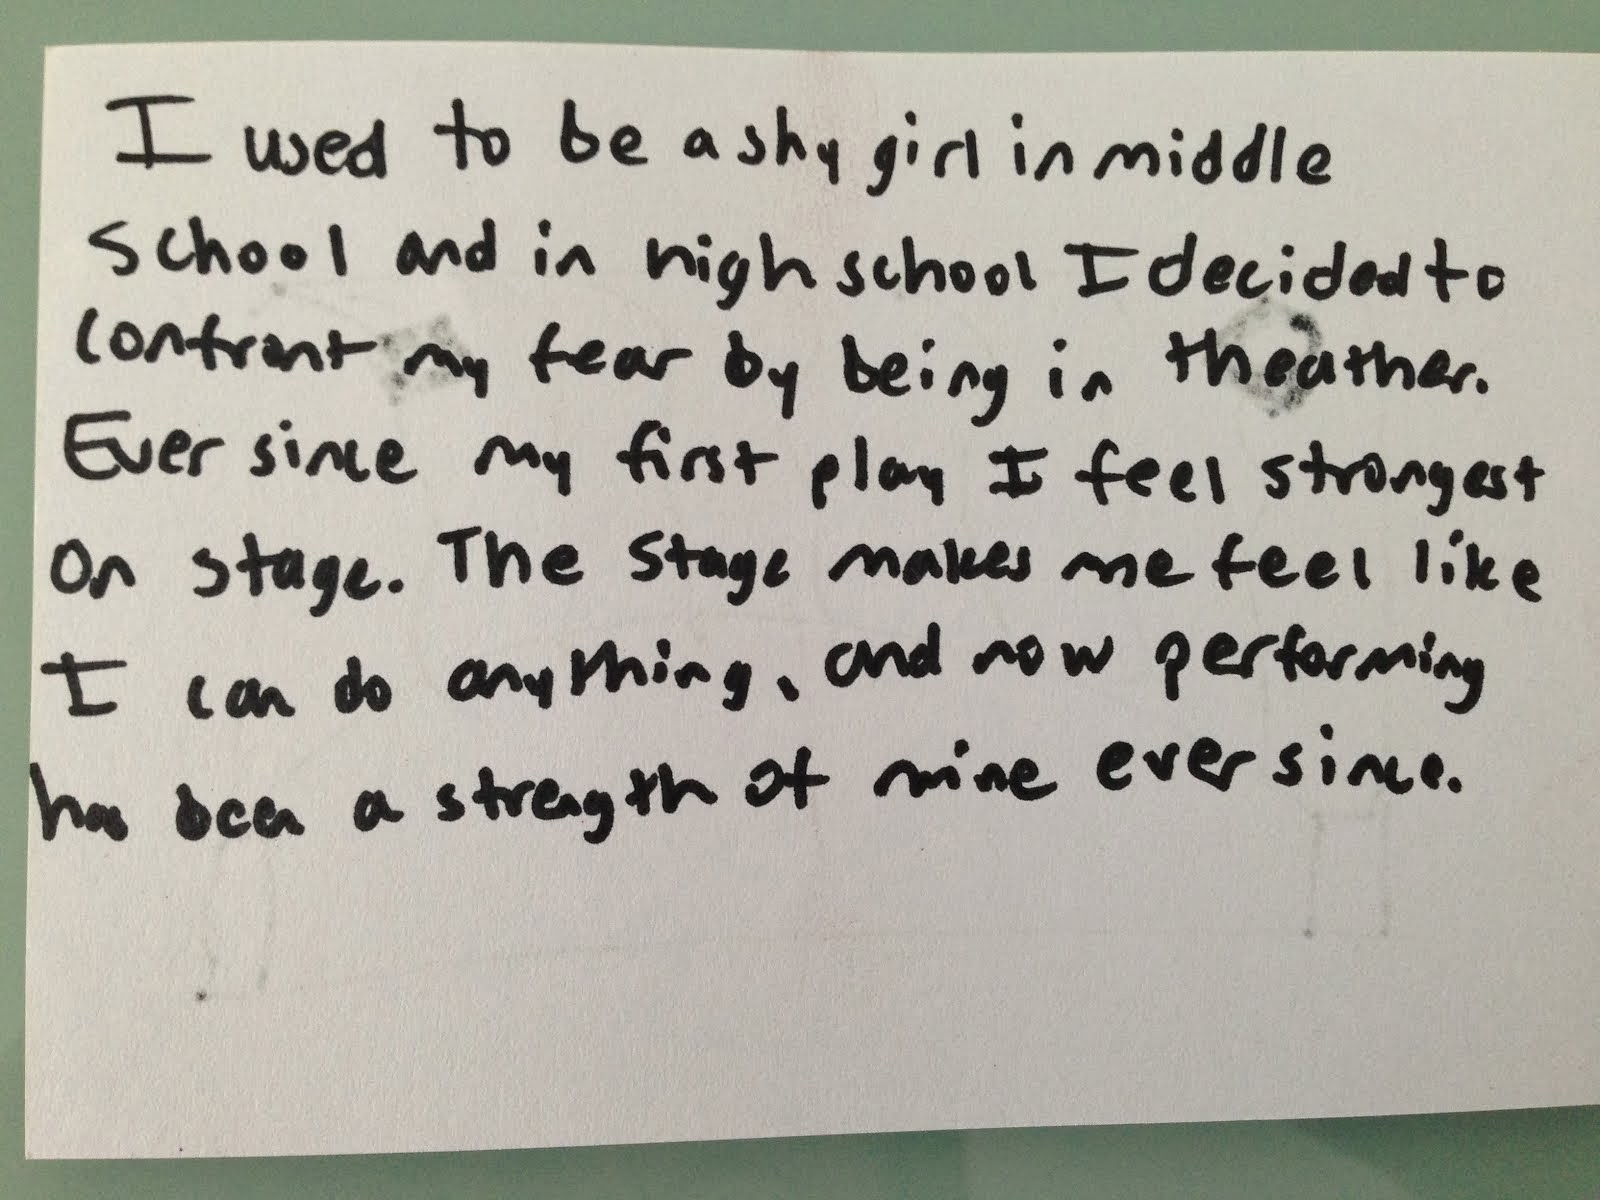 I used to be a shy girl in middle
school and in high school I decided to
confront my fear by being in theather.
Ever since my first play I feel strongest
on stage. The stage makes me feel like
I can do anything, and now performing
has been a strength of mine ever since.